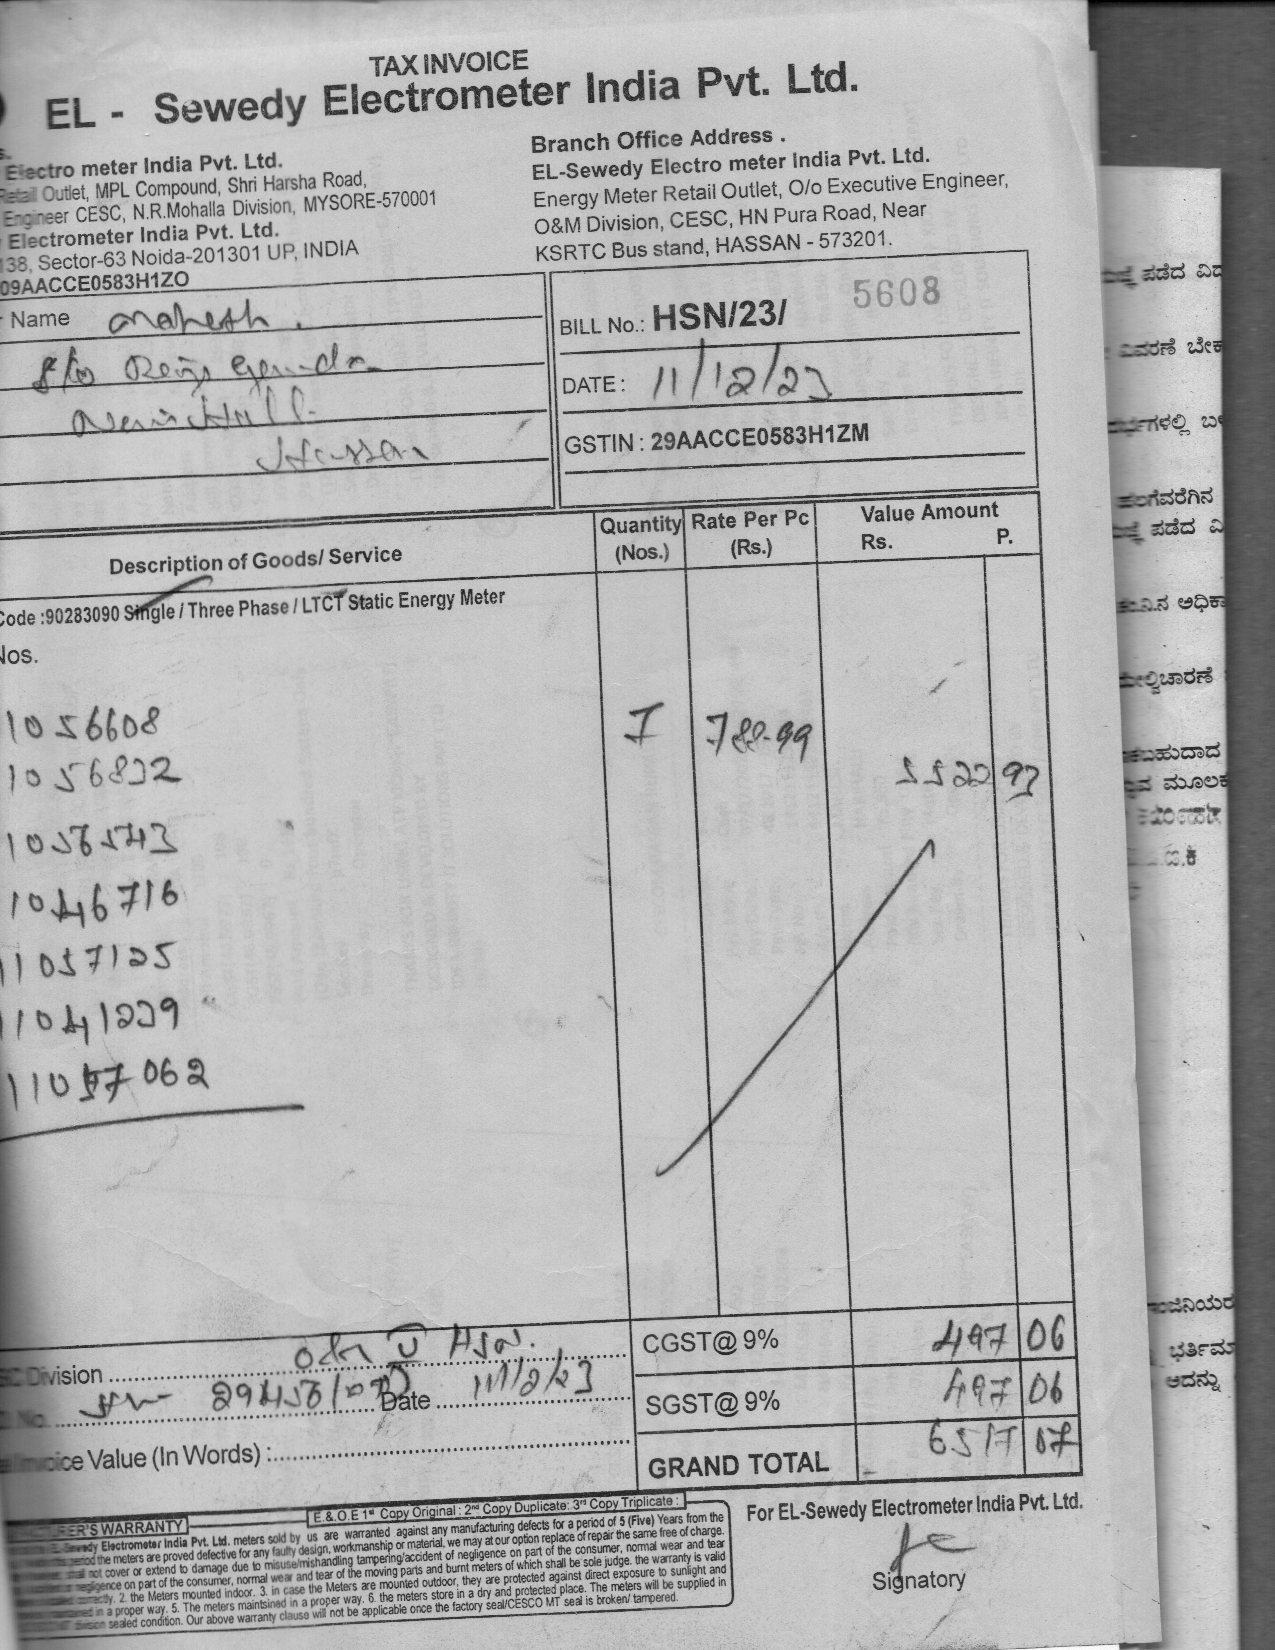 TAX INVOICE
EL - Sewedy Electrometer India Pvt. Ltd.
Electro meter India Pvt. Ltd.
Retail Outlet, MPL Compound, Shri Harsha Road,
Engineer CESC, N.R.Mohalla Division, MYSORE-570001
Electrometer India Pvt. Ltd.
138, Sector-63 Noida-201301 UP, INDIA
09AACCE0583H1ZO
Branch Office Address .
EL-Sewedy Electro meter India Pvt. Ltd.
Energy Meter Retail Outlet, O/o Executive Engineer,
O&M Division, CESC, HN Pura Road, Near
KSRTC Bus stand, HASSAN - 573201.
Name Mahesh .
S/o
Hassan
BILL No.: HSN/23/ 5608
DATE : 11/12/23
GSTIN : 29AACCE0583H1ZM
Description of Goods/ Service Quantity (Nos.) Rate Per Pc (Rs.) Value Amount Rs. P.
Code :90283090 Single / Three Phase / LTCT Static Energy Meter
Nos.
11056608 7 788-99
11056832 5522 93
11056543
11046716
11057125
11041239
11057062
Division HSN.
Date 11/12/23
CGST@ 9% 497 06
SGST@ 9% 497 06
Invoice Value (In Words) :
GRAND TOTAL 6517 07
E.& O.E 1st Copy Original : 2nd Copy Duplicate: 3rd Copy Triplicate :
For EL-Sewedy Electrometer India Pvt. Ltd.
Signatory
WARRANTY
Sewedy Electrometer India Pvt. Ltd. meters sold by us are warranted against any manufacturing defects for a period of 5 (Five) Years from the
period the meters are proved defective for any faulty design, workmanship or material, we may at our option replace of repair the same free of charge.
not cover or extend to damage due to misuse/mishandling tampering/accident of negligence on part of the consumer, normal wear and tear
negligence on part of the consumer, normal wear and tear of the moving parts and burnt meters of which shall be sole judge. the warranty is valid
correctly. 2. the Meters mounted indoor. 3. in case the Meters are mounted outdoor, they are protected against direct exposure to sunlight and
in a proper way. 5. The meters maintsined in a proper way. 6. the meters store in a dry and protected place. The meters will be supplied in
sealed condition. Our above warranty clause will not be applicable once the factory seal/CESCO MT seal is broken/ tampered.
ಪಡೆದ
ವಿವರಣೆ
ಪಡೆದ
ಮೂಲಕ
ಅದನ್ನು